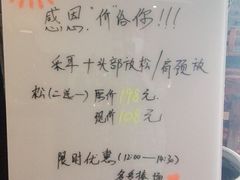 感恩"价"给你!!!
采耳+头部放松/肩颈放
松(二选一)原价198元
现价108元
限时优惠(12:00—14:30)